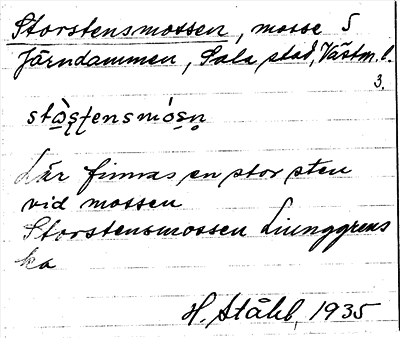 Storstensmossen, mosse S
Järndammen, Sala stad, Västm. l.
3.
Där finnas en stor sten
vid mossen
Storstensmossen Ljunggrens
ka
H. Ståhl, 1935